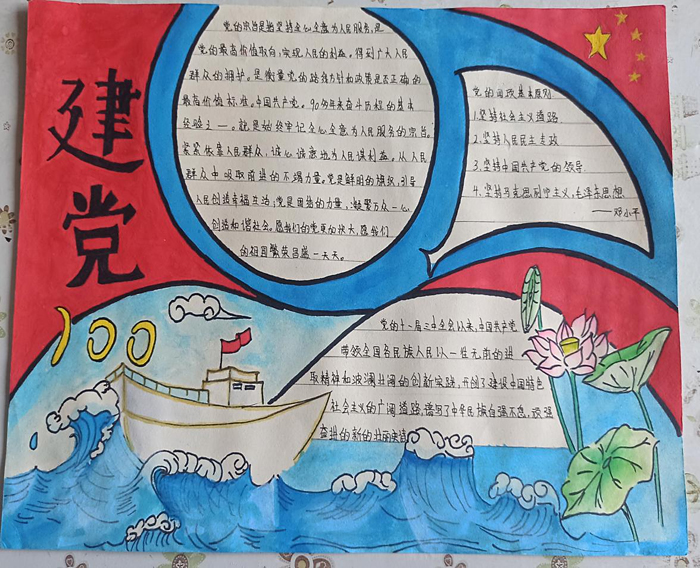 建党
100
党的宗旨是始坚持全心全意为人民服务,是
党的最高价值取向,实现人民的利益,得到广大人民
群众的拥护。是衡量党的路线方针和政策是否正确的
最高价值标准。中国共产党。90多年来奋斗历程的基本
经验之一。就是始终牢记全心全意为人民服务的宗旨,
紧紧依靠人民群众,诚心诚意地为人民谋利益,从人民
群众中吸取前进的不竭力量,党是鲜明的旗帜,引导
人民创造幸福生活,党是团结的力量,凝聚万众一心,
创造和谐社会。愿我们的党更加强大,愿我们
的祖国繁荣昌盛一天天。
党的四项基本原则
1.坚持社会主义道路
2.坚持人民民主专政
3.坚持中国共产党的领导
4.坚持马克思列宁主义,毛泽东思想
——邓小平
党的十一届三中全会以来,中国共产党
带领全国各民族人民以一往无前的进
取精神和波澜壮阔的创新实践,开创了建设中国特色
社会主义的广阔道路,谱写了中华民族自强不息,顽强
奋进的新的壮丽史诗